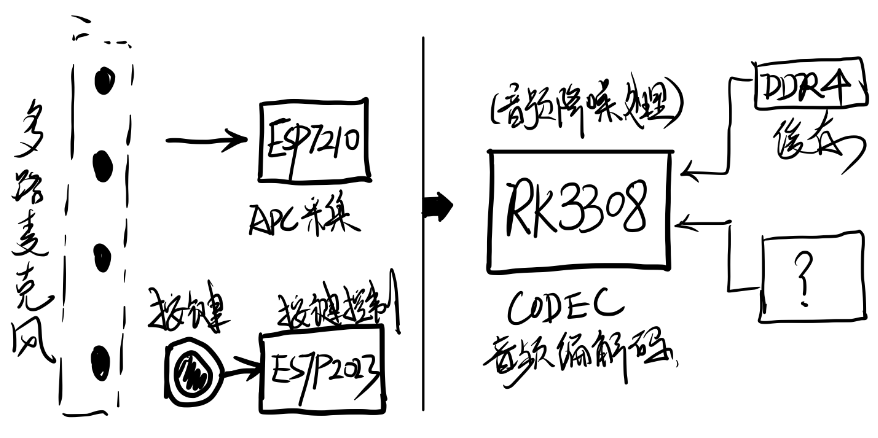 多路麦克风
ESP7210
ADC采集
按键
按键控制
ESJP2023
(音频降噪处理)
RK3308
CODEC
音频编解码
DDR4
缓存
?